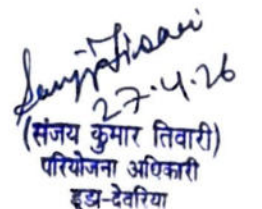 Sanjay Tiwari
27.4.26
(संजय कुमार तिवारी)
परियोजना अधिकारी
डूडा-देवरिया